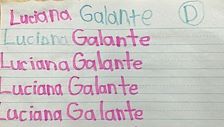 Luciana Galante D
Luciana Galante
Luciana Galante
Luciana Galante
Luciana Galante